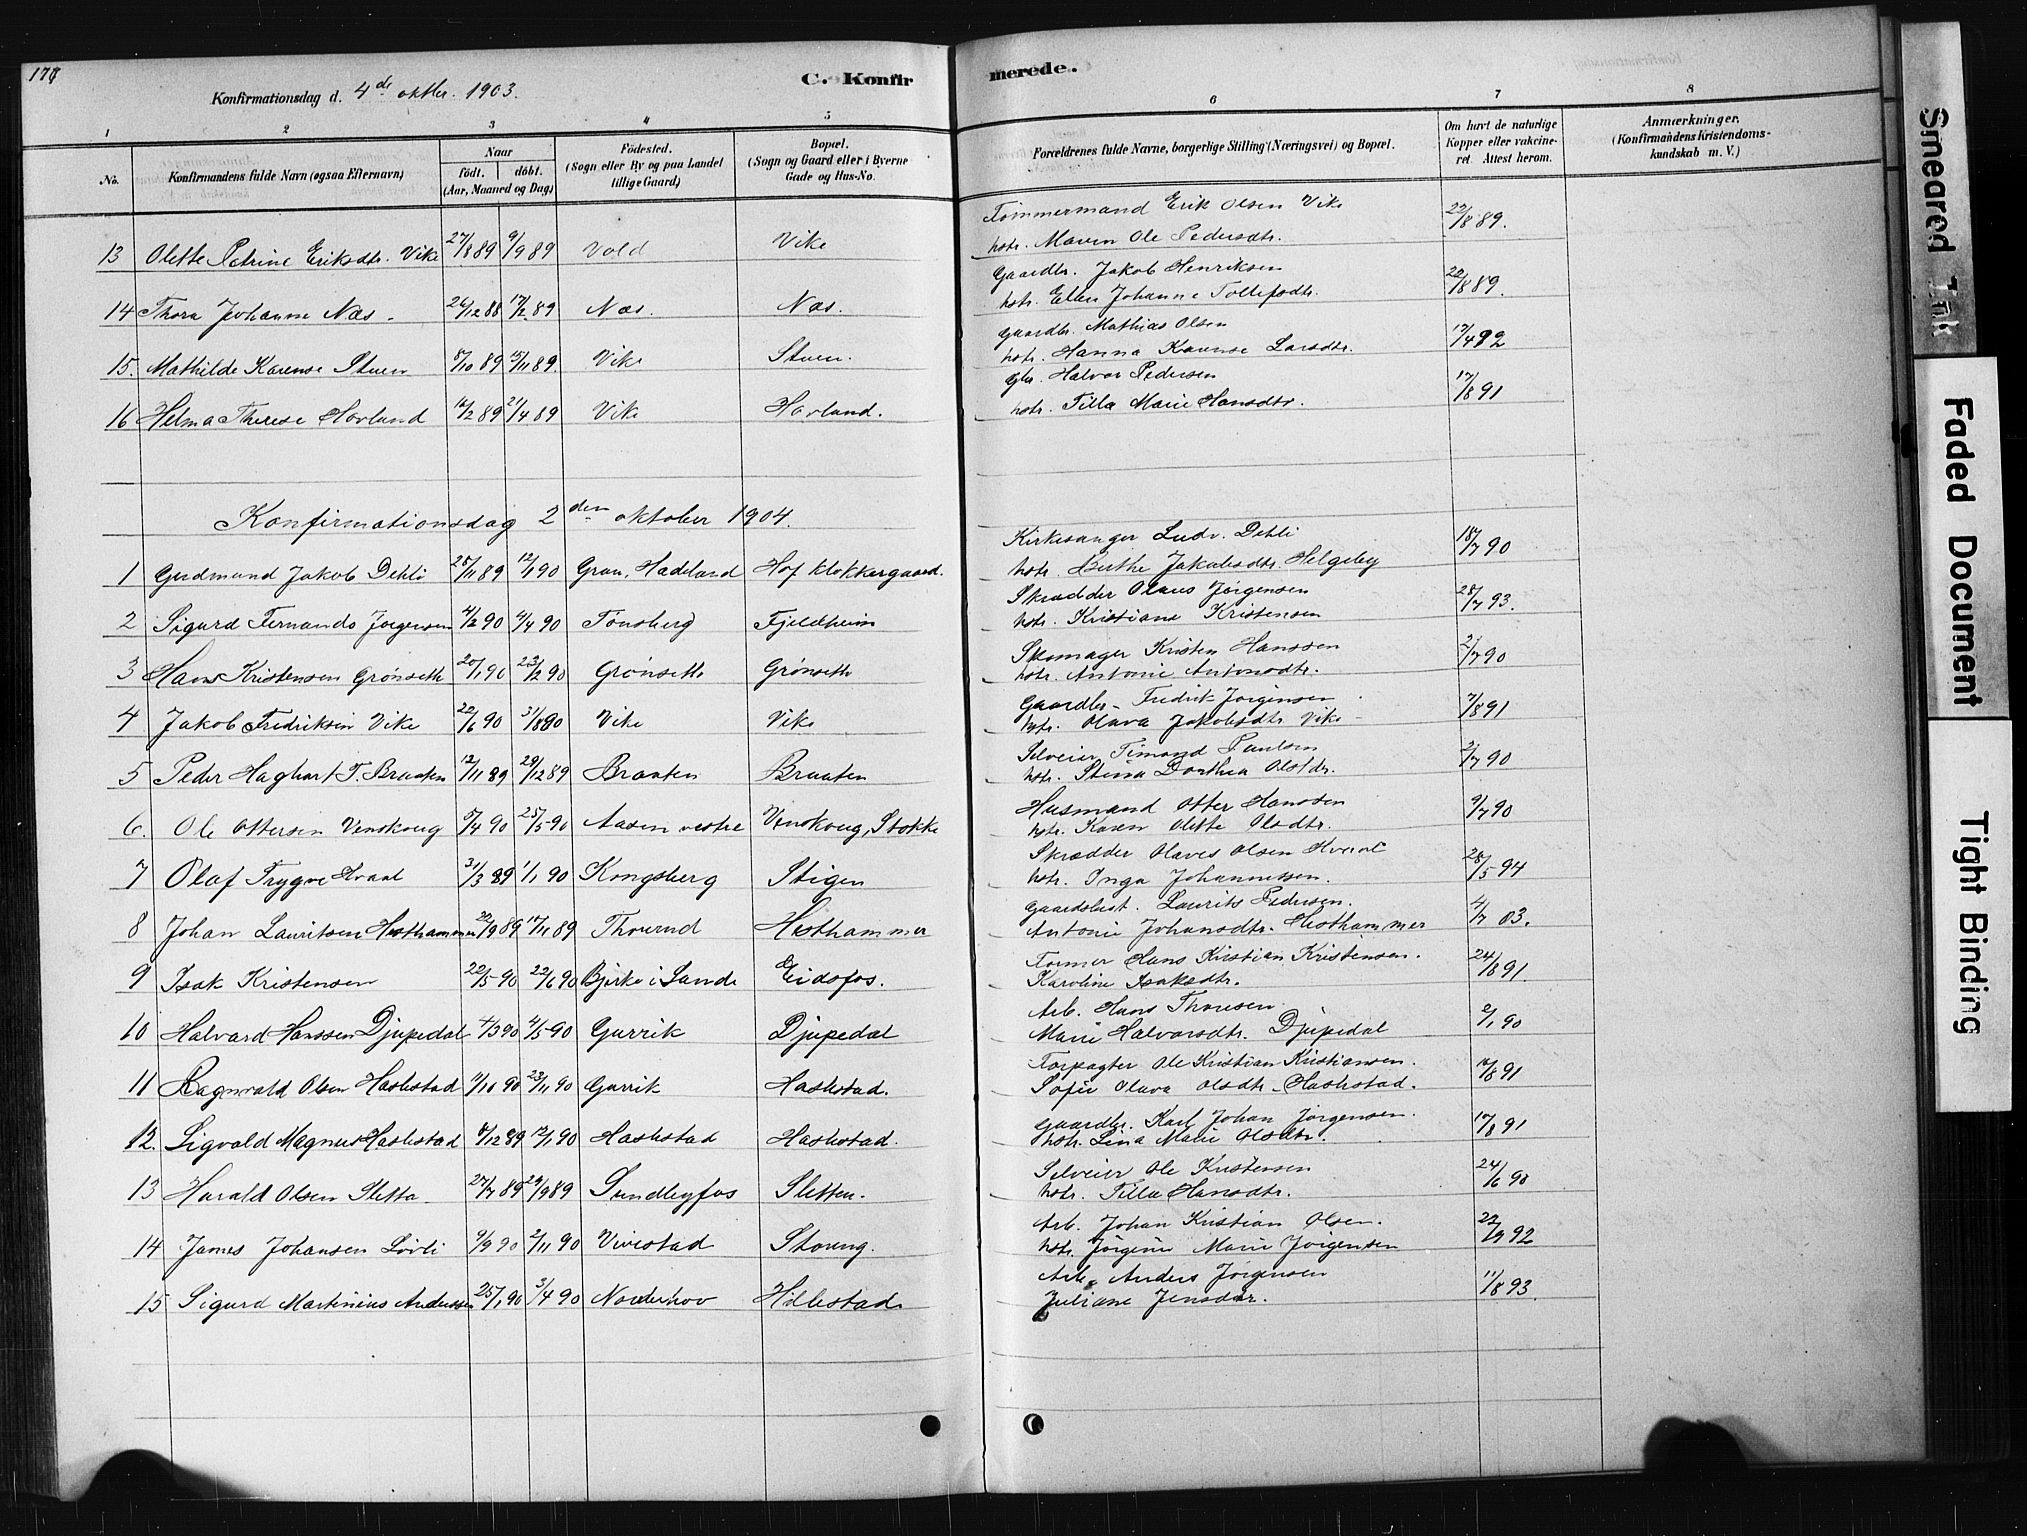 178
C. Konfirmerede.
Konfirmationsdag d. 4de oktbr. 1903.
1 2 3 4 5 6 7 8
No. Konfirmandens fulde Navn (ogsaa Efternavn) Naar født. døbt. (Aar, Maaned og Dag) Fødested. (Sogn eller By og paa Landet tillige Gaard) Bopæl. (Sogn og Gaard eller i Byerne Gade og Hus-No. Forældrenes fulde Navne, borgerlige Stilling (Næringsvei) og Bopæl. Om havt de naturlige Kopper eller vakcineret. Attest herom. Anmærkninger. (Konfirmandens Kristendomskundskab m. V.)
13 Olette Petrine Eriksdtr. Vike 27/8 89 9/9 89 Vold Vike Tømmermand Erik Olsen Vike
hstr. Maren Ole Pedersdtr. 22/8 89.
14 Thora Johanne Næs. 26/12 88 17/2 89 Næs. Næs. Gaardbr. Jakob Henriksen
hstr. Ellen Johanne Tollefsdtr. 22/8 89.
15. Mathilde Karense Stuen 8/10 89 15/11 89. Vike Stuen. Gaardbr. Mathias Olsen
hstr. Hanna Karense Larsdtr. 13/4 92
16 Helma Therese Hovland 16/2 89 21/4 89 Vike Hovland. Gbr. Halvor Pedersen
hstr. Tilla Marie Hansdtr. 17/8 91
Konfirmationsdag 2den oktober 1904.
1 Gudmund Jakob Dehli 25/11 89 12/1 90 Gran, Hadeland Hof klokkergaard. Kirkesanger Ludv. Dehli
hstr. Berthe Jakobsdtr. Helgeby 18/7 90
2 Sigurd Fernando Jørgensen 4/2 90 4/4 90 Tønsberg Fjeldheim Skrædder Olaus Jørgensen
hstr. Kristiane Kristensen 28/7 93.
3 Hans Kristensen Grønseth 20/1 90 23/2 90 Grønseth Grønseth Skomager Kristen Hanssen
hstr. Antonie Antonsdtr. 2/7 90
4 Jakob Fredriksen Vike 22/6 90 3/8 90 Vike Vike Gaardbr. Fredrik Jørgensen
hstr. Olava Jakobsdtr. Vike 7/8 91
5 Peder Haghart T. Braaten 12/11 89 29/12 89 Braaten Braaten Selveier Timand Paulsen
hstr. Stina Dorthea Olsdtr. 2/7 90
6. Ole Ottersen Venskoug 8/4 90 25/5 90 Aasen vestre Venskoug, Stokke Husmand Otter Hanssen
hstr. Karen Olette Olsdtr. 9/7 90
7 Olaf Trygve Hvaal 3/3 89 1/1 90 Kongsberg Stigen Skrædder Olaves Olsen Hvaal
hstr. Inga Johannessen. 28/5 94
8 Johan Lauritsen Hesthammer 22/9 89 17/11 89 Thorrud Hesthammer Gaardsbest. Laurits Pedersen.
Antonie Johansdtr. Hesthammer 4/7 03.
9 Isak Kristensen 22/5 90 22/6 90 Bjerke i Sande Eidsfos. Former Hans Kristian Kristensen.
Karoline Isaksdtr. 24/8 91
10 Halvard Hanssen Djupedal 4/3 90 4/5 90 Gurrik Djupedal Arb. Hans Thoresen
Marie Halvorsdtr. Djupedal 2/1 90
11 Ragnvald Olsen Haslestad 11/10 90 23/11 90 Gurrik Haslestad. Forpagter Ole Kristian Kristiansen.
Sofie Olava Olsdtr. Haslestad. 18/8 91
12. Sigvald Magnus Haslestad 8/12 89 12/1 90 Haslestad Haslestad. Gaardbr. Karl Johan Jørgensen.
hstr. Lina Marie Olsdtr. 10/8 91
13 Harald Olsen Sletta 27/7 89 29/9 89 Sundbyfos Sletten. Selveier Ole Kristensen
hstr. Tilla Hansdtr. 24/6 90
14 James Johansen Løvli 9/9 90 2/11 90 Vivestad Storeng. Arb. Johan Kristian Olsen.
hstr. Jørgine Marie Jørgensen 22/9 92
15 Sigurd Martinius Anderssen 25/1 90 3/4 90 Norderhov Hillestad Arb. Anders Jørgensen
Juliane Jensdtr. 11/8 93
Smeared Ink
Faded Document
Tight Binding